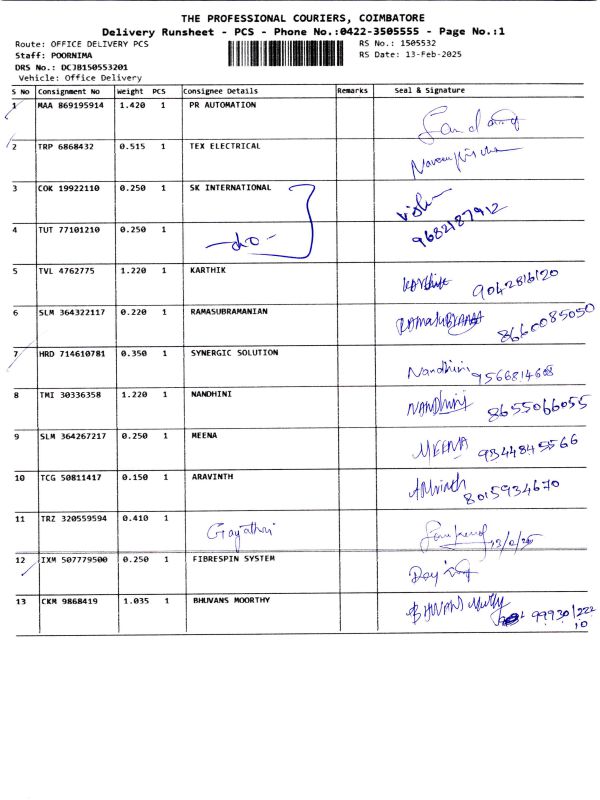 THE PROFESSIONAL COURIERS, COIMBATORE
Delivery Runsheet - PCS - Phone No.:0422-3505555 - Page No.:1
Route: OFFICE DELIVERY PCS RS No.: 1505532
Staff: POORNIMA RS Date: 13-Feb-2025
DRS No.: DCJB150553201
Vehicle: Office Delivery
S No Consignment No Weight PCS Consignee Details Remarks Seal & Signature
1 MAA 869195914 1.420 1 PR AUTOMATION
2 TRP 6868432 0.515 1 TEX ELECTRICAL
3 COK 19922110 0.250 1 SK INTERNATIONAL
4 TUT 77101210 0.250 1 -do- 9682187912
5 TVL 4762775 1.220 1 KARTHIK Karthik 9042816120
6 SLM 364322117 0.220 1 RAMASUBRAMANIAN 8668085050
7 HRD 714610781 0.350 1 SYNERGIC SOLUTION Nandhini 9566814608
8 TMI 30336358 1.220 1 NANDHINI NANDHINI 8655066055
9 SLM 364267217 0.250 1 MEENA MEENA 9344845566
10 TCG 50811417 0.150 1 ARAVINTH 8015934670
11 TRZ 320559594 0.410 1 Gayathri
12 IXM 507779500 0.250 1 FIBRESPIN SYSTEM
13 CKM 9868419 1.035 1 BHUVANS MOORTHY